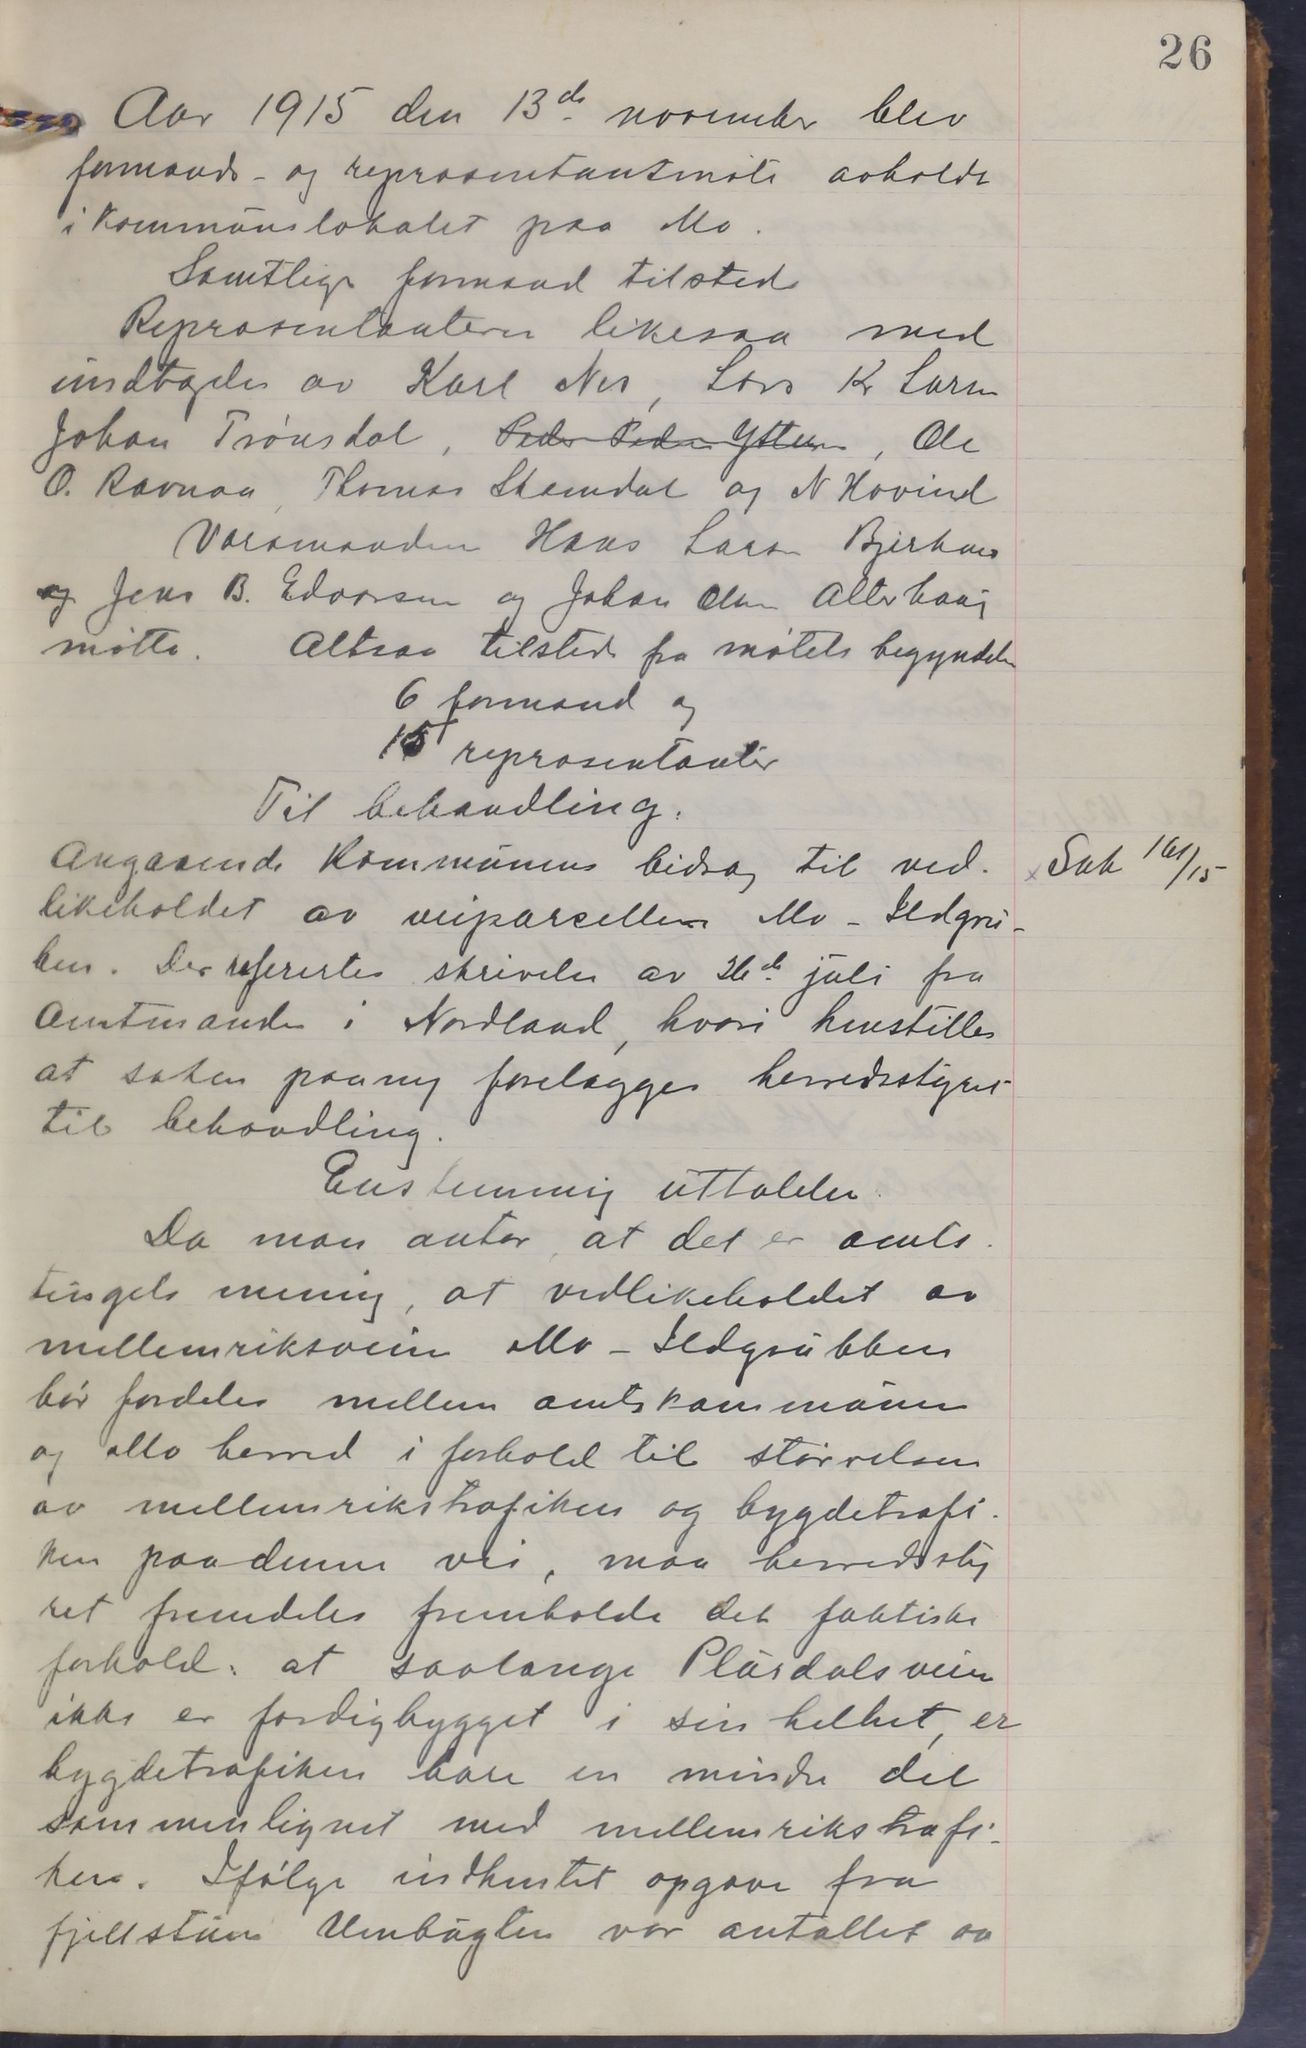 26
Aar 1915 den 13de november blev
formands- og representantmøte avholdt
i kommunelokalet paa Mo.
Samtlige formænd tilstede
Representanterne likesaa med
undtagelse av Karl Nes, Lars Kr Larsen
Johan Trønsdal, Peder Peder Ytteren, Ole
O. Ravnaa, Thomas Skamdal og N Hovind
Varamændene Hans Larsen Bjerkmo
og Jens B. Edvarsen og Johan Olsen Alterhaug
møtte. Altsaa tilstede fra møtets begyndelse
6 formænd og
15 representanter
Til behandling.
Angaaende kommunens bidrag til ved-
Sak 161/15
likeholdet av veiparcellen Mo - Ildgru-
ben. Der refertes skrivelse av 26de juli fra
Amtmanden i Nordland, hvori henstilles
at saken paany forelægges herredsstyret
til behandling.
Enstemmig uttalelse.
Da man antar, at det er amts-
tingets mening, at vedlikeholdet av
mellemriksveien Mo - Ildgrubben
bør fordeles mellem amtskommunen
og Mo herred i forhold til størrelsen
av mellemrikstrafiken og bygdetrafi-
ken paa denne vei, maa herredssty
ret fremdeles fremholde det faktiske
forhold: at saalange Plurdalsveien
ikke er færdigbygget i sin helhet, er
bygdetrafiken bare en mindre del
sammenlignet med mellemrikstrafi-
ken. Ifølge indhentet opgave fra
fjellstuen Umbugten var antallet av